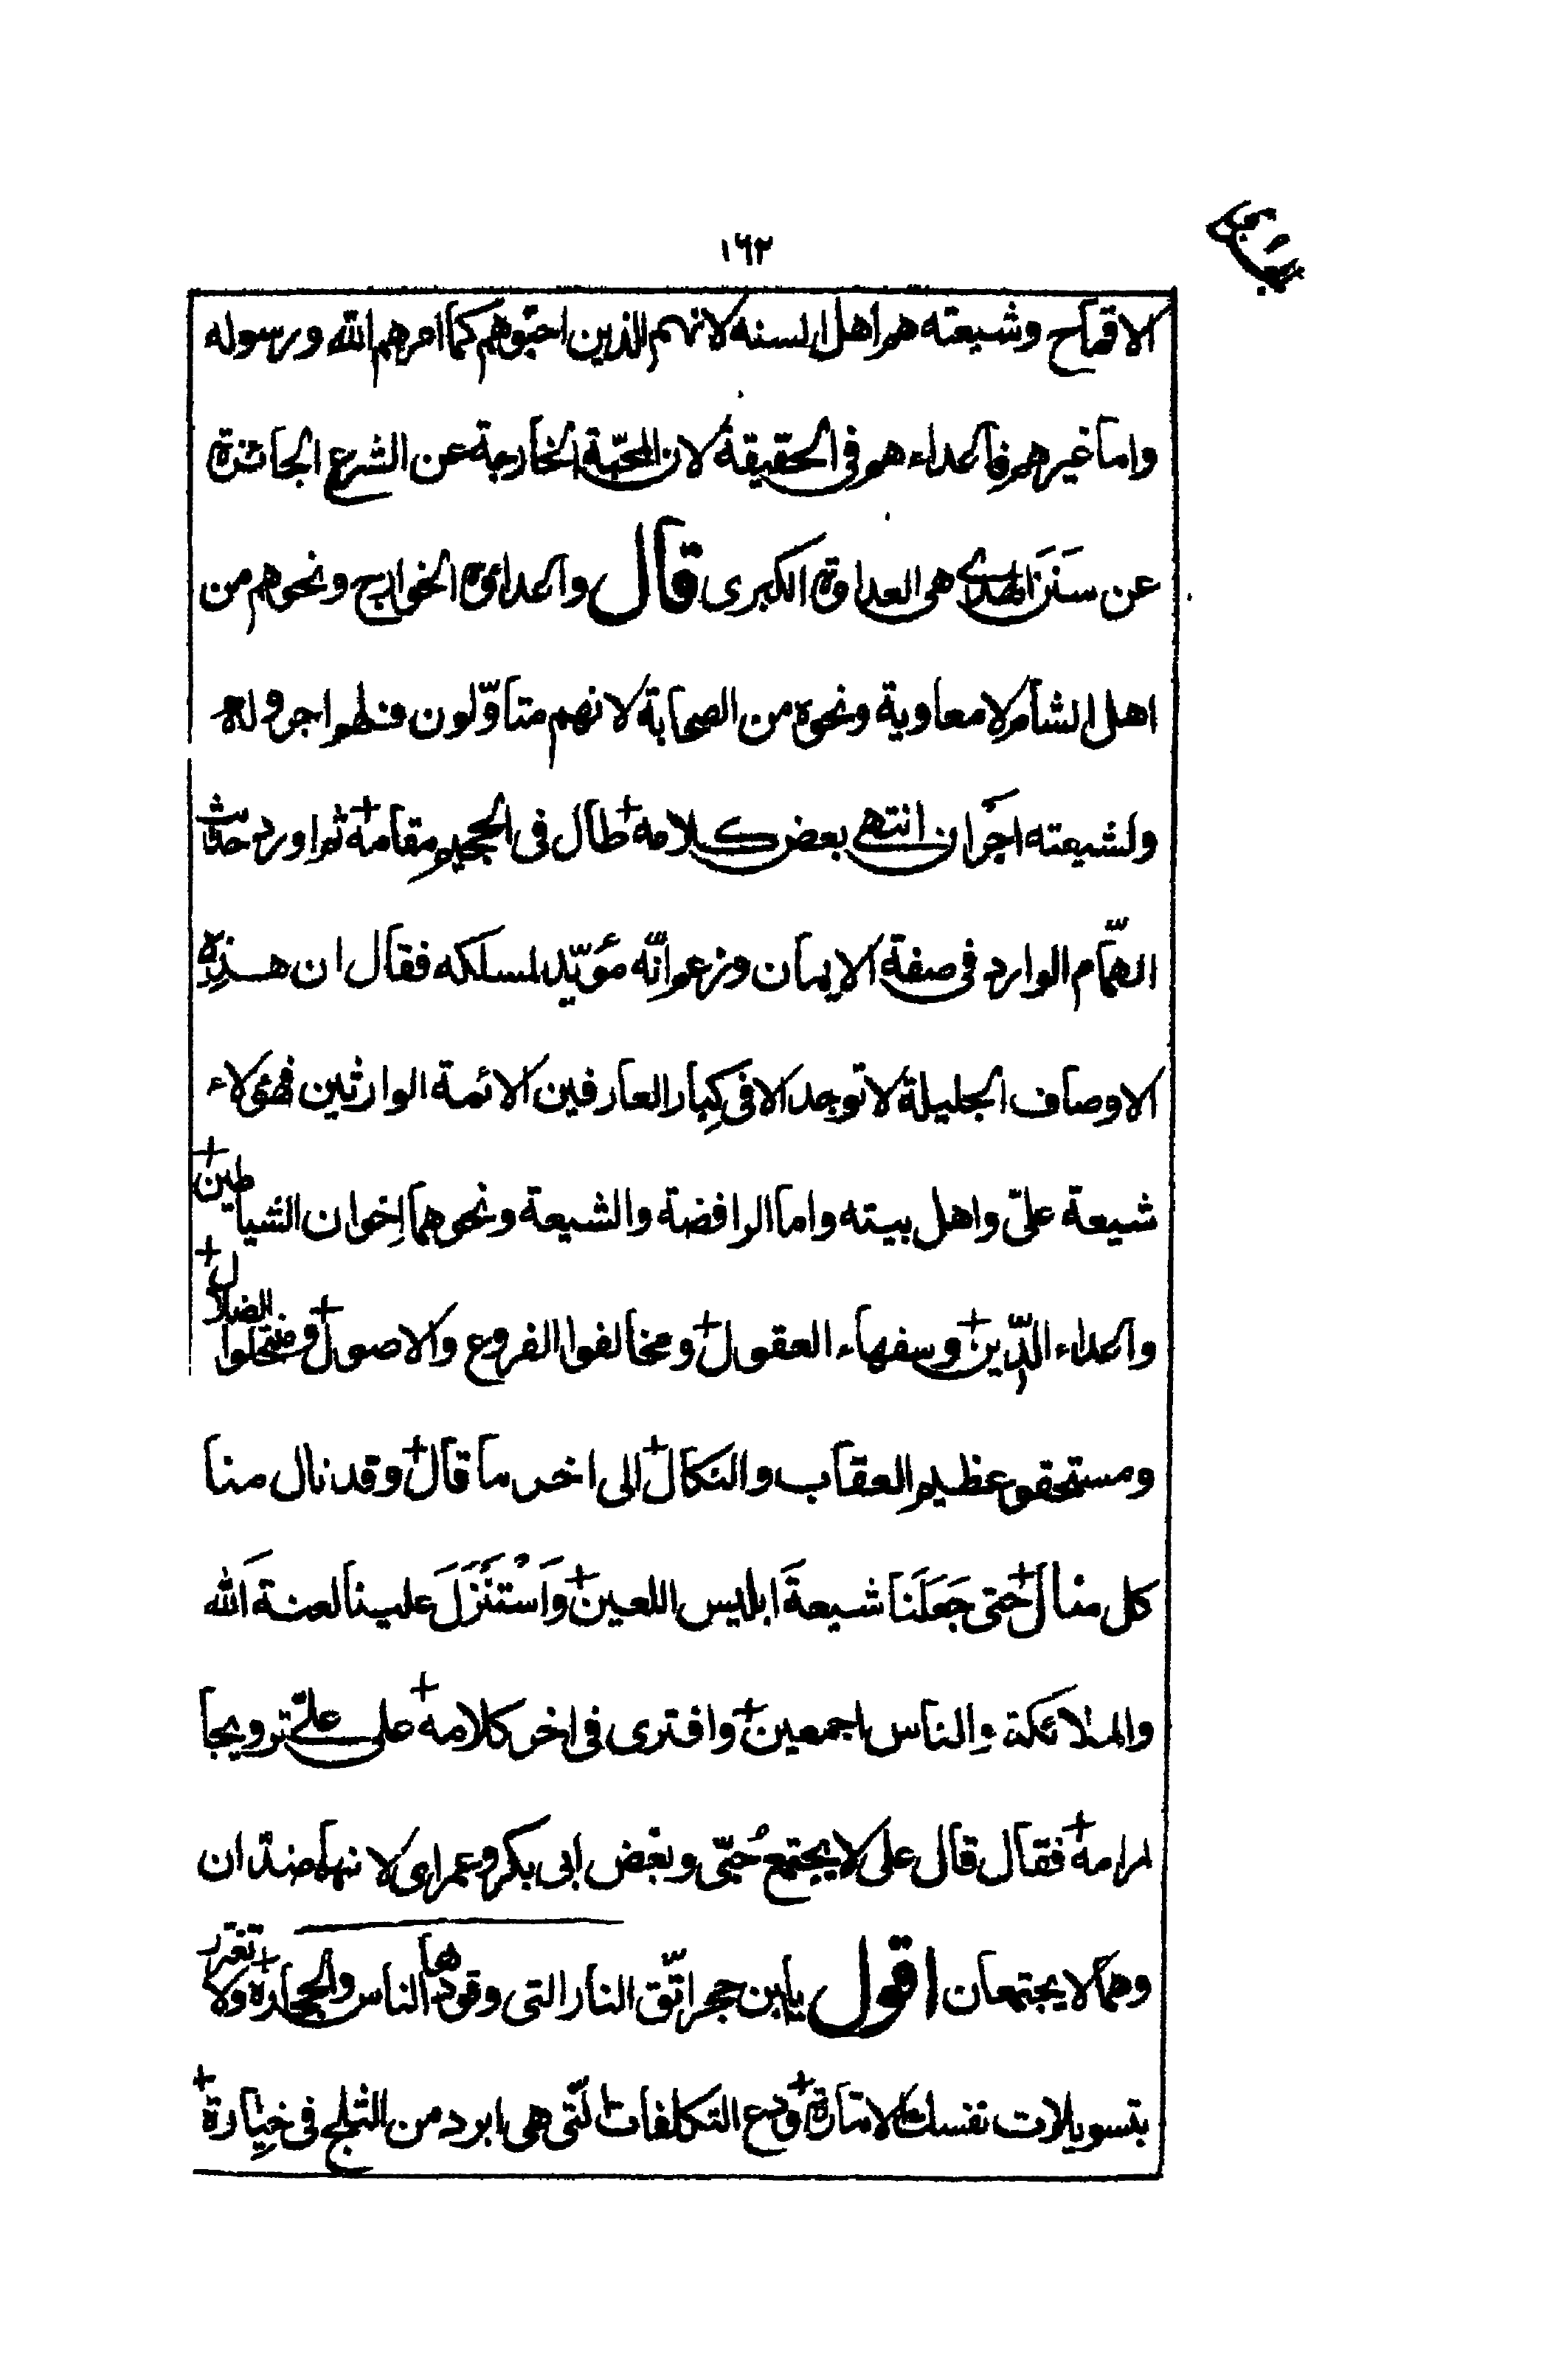 ١٦٢
الاقماح وشيعته هم اهل السنه لانهم الذين احبّوهم كما امرهم الله ورسوله
واما غيرهم فاعداءهم فى الحقيقة لان المحبّة الخارجة عن الشرع الجائزة
عن سَنَن الهدى هى العداوة الكبرى قال واعداؤه الخوارج ونحوهم من
اهل الشأم لا معاوية ونحوه من الصحابة لانهم متأوّلون فلهم اجر وله
ولشيعته اجران انتهى بعض كلامه+ طال فى الجحيم مقامه+ ثم اورد حديث
الهمّام الوارد فى صفة الايمان وزعم انّه مؤيّد لمسلكه فقال ان هذه
الاوصاف الجليلة لا توجد الا فى كِبار العارفين الائمة الوارثين فهؤلاء
شيعة علىّ واهل بيته واما الرافضة والشيعة ونحوهما اِخوان الشياطين+
واعداء الدّين+ وسفهاء العقول+ ومخالفوا الفروع والاصول+ ومنتحلوا الضلال+
ومستحقو عظيم العقاب والنكال+ الى اخر ما قال+ وقد نال منا
كل منال+ حتى جَعَلَنا شيعةَ ابليس اللعين+ وَاسْتَنْزَلَ علينا لعنةَ الله
والملائكة والناس اجمعين+ وافترى فى اخر كلامه+ على علىّ ترويجا
لمرامه+ فقال قال على لا يجتمع حُبّى وبغض ابى بكر وعمر اى لانهما ضدّان
وهما لا يجتمعان اقول يابن حجر اتّق النار التى وقودها الناس والحجارة+ ولا تغترر
بتسويلات نفسك الامّارة+ ودع التكلفات الّتى هى ابرد من الثلج فى خِيارة+